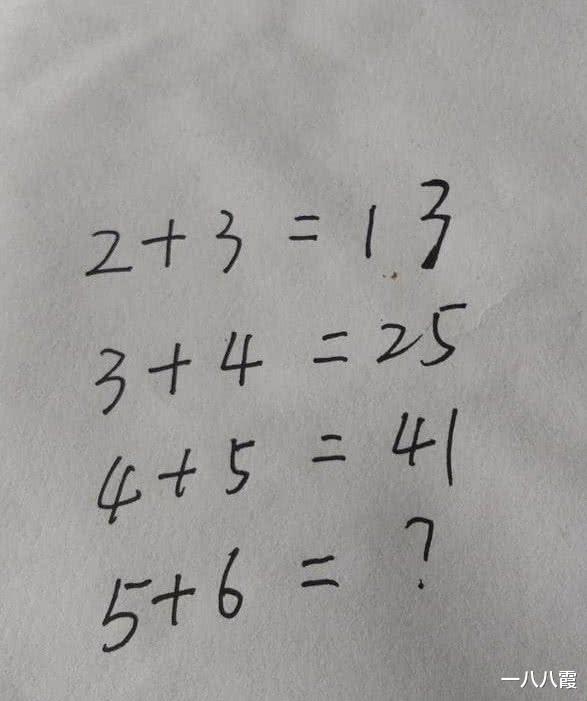 2+3=13
3+4=25
4+5=41
5+6=?
一八八霞